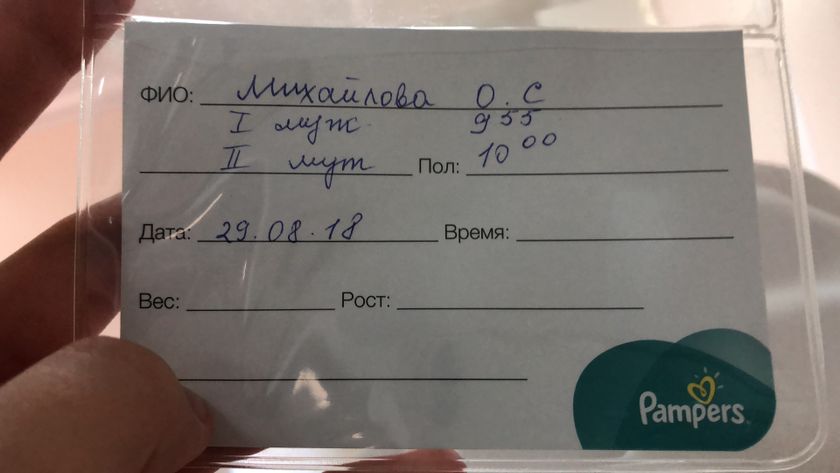 ФИО: Михайлова О. С
I муж 9 55
II муж Пол: 10 00
Дата: 29.08.18 Время:
Вес: Рост:
Pampers